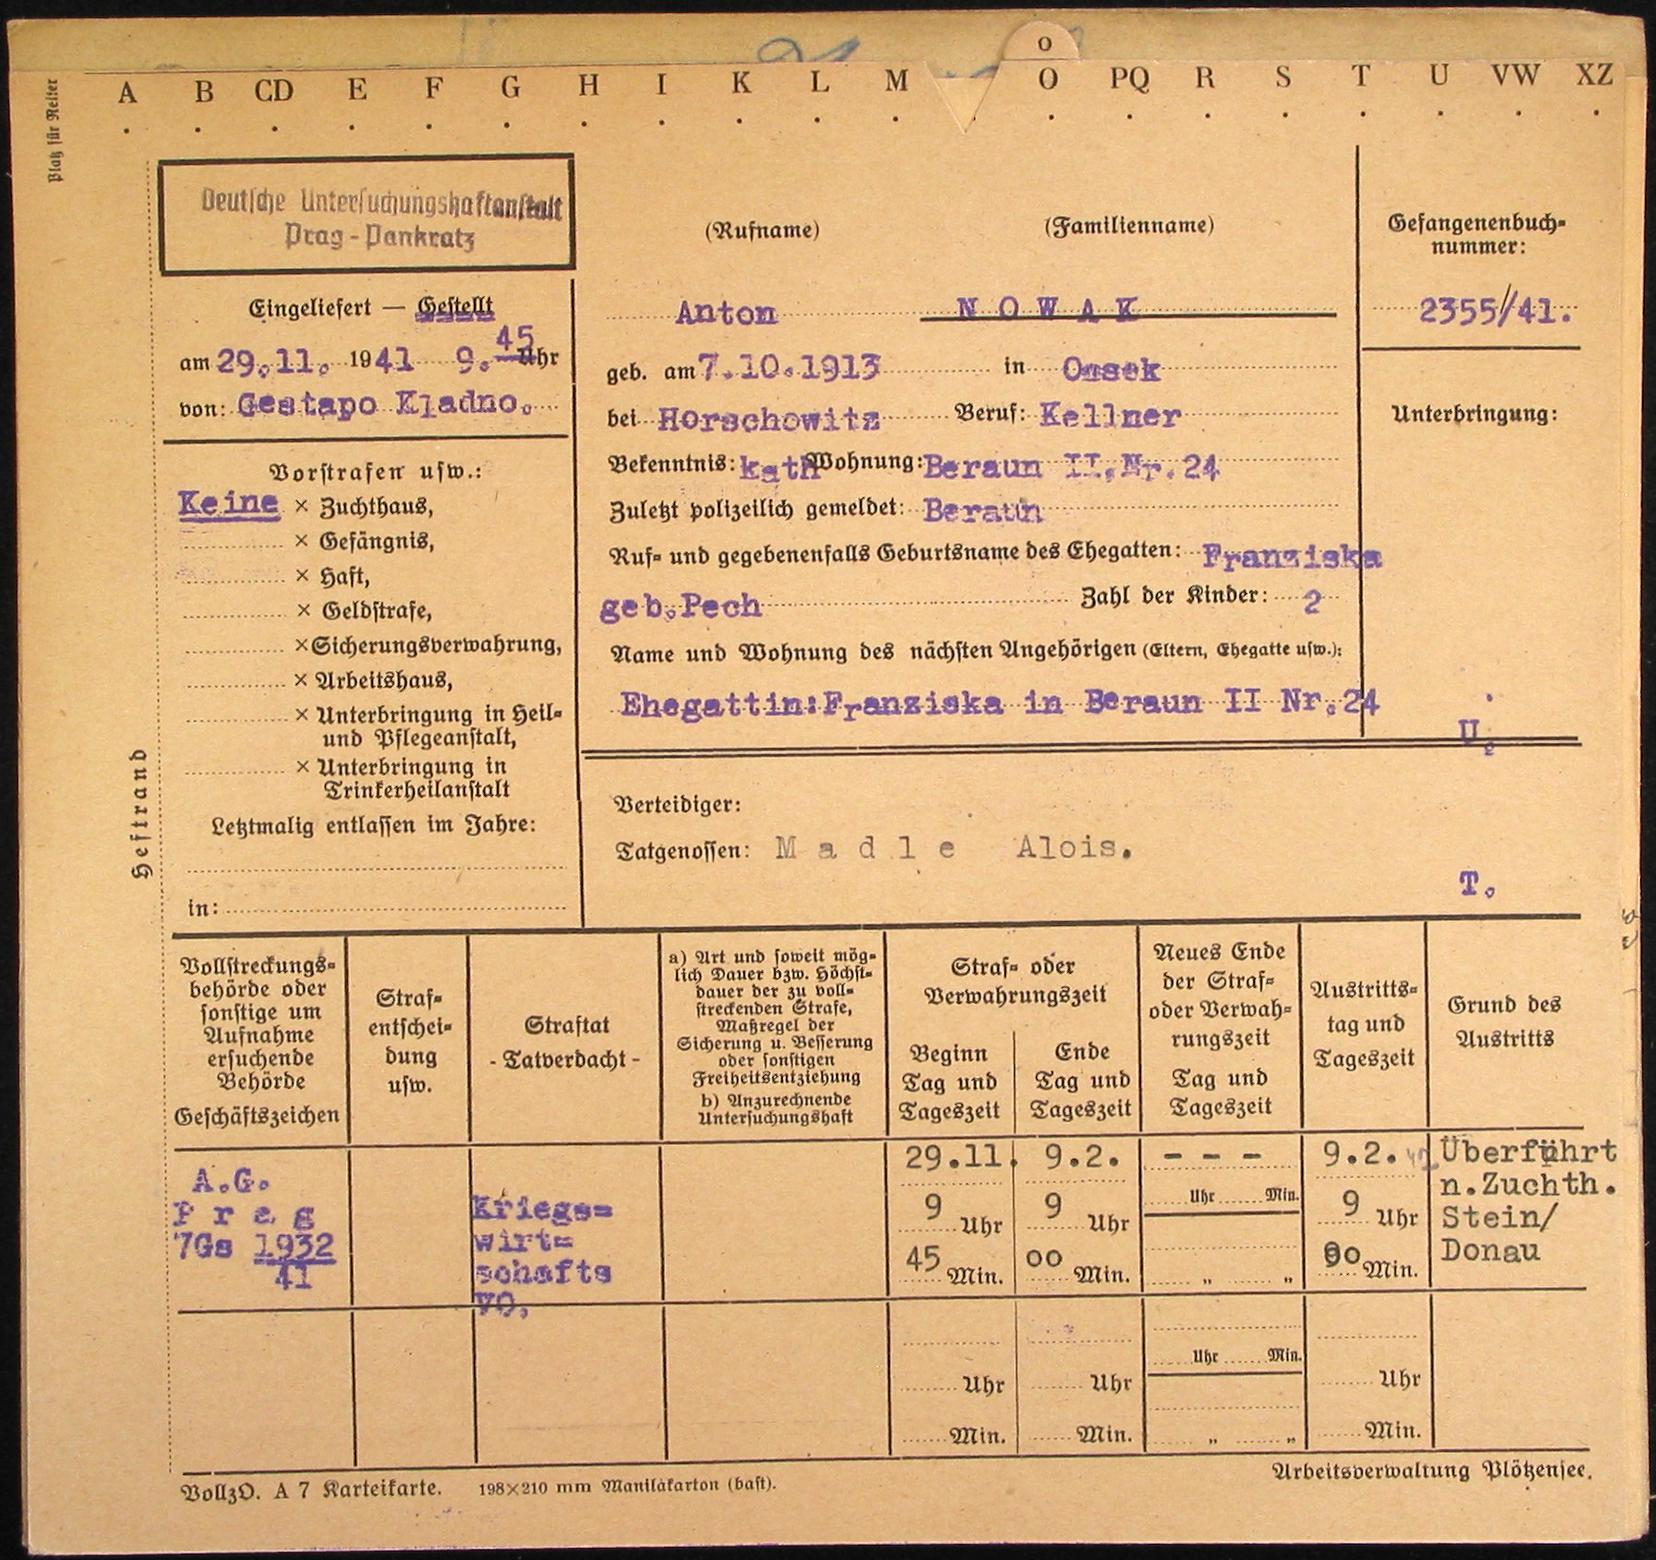 o
A B CD E F G H I K L M O PQ R S T U VW XZ
Platz für Reiter
Heftrand
Deutsche Untersuchungshaftanstalt
Prag-Pankratz
Eingeliefert — Gestellt
am 29.11. 1941 9.45 Uhr
von: Gestapo Kladno.
Vorstrafen usw.:
Keine × Zuchthaus,
× Gefängnis,
× Haft,
× Geldstrafe,
× Sicherungsverwahrung,
× Arbeitshaus,
× Unterbringung in Heil-
und Pflegeanstalt,
× Unterbringung in
Trinkerheilanstalt
Letztmalig entlassen im Jahre:
in:
(Rufname) (Familienname)
Anton NOWAK
geb. am 7.10.1913 in Ossek
bei Horschowitz Beruf: Kellner
Bekenntnis: kath Wohnung: Beraun II.Nr.24
Zuletzt polizeilich gemeldet: Beraun
Ruf- und gegebenenfalls Geburtsname des Ehegatten: Franziska
geb.Pech Zahl der Kinder: 2
Name und Wohnung des nächsten Angehörigen (Eltern, Ehegatte usw.):
Ehegattin:Franziska in Beraun II Nr.24
Gefangenenbuch-
nummer:
2355/41.
Unterbringung:
U.
Verteidiger:
Tatgenossen: Madle Alois.
T.
Vollstreckungs-
behörde oder
sonstige um
Aufnahme
ersuchende
Behörde
Geschäftszeichen
Straf-
entschei-
dung
usw.
Straftat
- Tatverdacht -
a) Art und soweit mög-
lich Dauer bzw. Höchst-
dauer der zu voll-
streckenden Strafe,
Maßregel der
Sicherung u. Besserung
oder sonstigen
Freiheitsentziehung
b) Anzurechnende
Untersuchungshaft
Straf- oder
Verwahrungszeit
Beginn
Tag und
Tageszeit
Ende
Tag und
Tageszeit
Neues Ende
der Straf-
oder Verwah-
rungszeit
Tag und
Tageszeit
Austritts-
tag und
Tageszeit
Grund des
Austritts
A.G.
Prag
7Gs 1932
41
Kriegs=
wirt=
schafts
VO.
29.11.
9 Uhr
45 Min.
9.2.
9 Uhr
00 Min.
- - -
Uhr Min.
„ „
9.2. 42
9 Uhr
00 Min.
Überführt
n.Zuchth.
Stein/
Donau
Uhr
Min.
Uhr
Min.
Uhr Min.
„ „
Uhr
Min.
VollzO. A 7 Karteikarte. 198×210 mm Manilakarton (bast).
Arbeitsverwaltung Plötzensee.